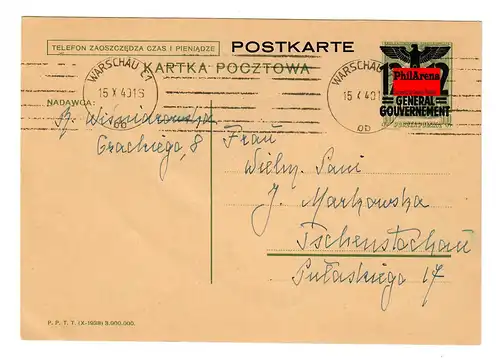 TELEFON ZAOSZCZĘDZA CZAS I PIENIĄDZE
POSTKARTE
KARTKA POCZTOWA
WARSCHAU C1
15 X 40 16
ob
WARSCHAU
15 X 40 1
ob
12
PhilArena
GENERAL
GOUVERNEMENT
NADAWCA:
Wiśniakowska
Grackiego, 8
Frau
Wielm. Pani
J. Markowska
Tschenstochau
Pułaskiego 17
P. P. T. T. (X-1938) 3.000.000.